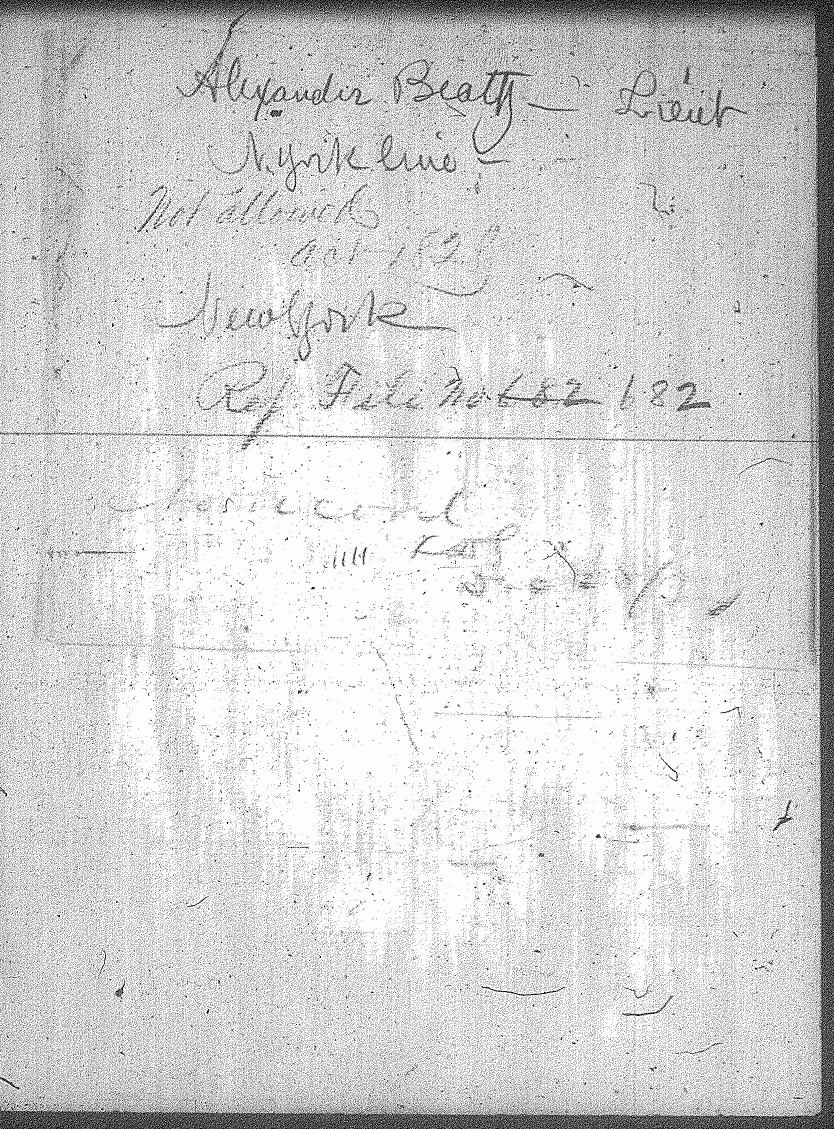 Alexander Beatty — Lieut
N. York line —
Not allowed
act 1828
New York
Rej File No 682 682